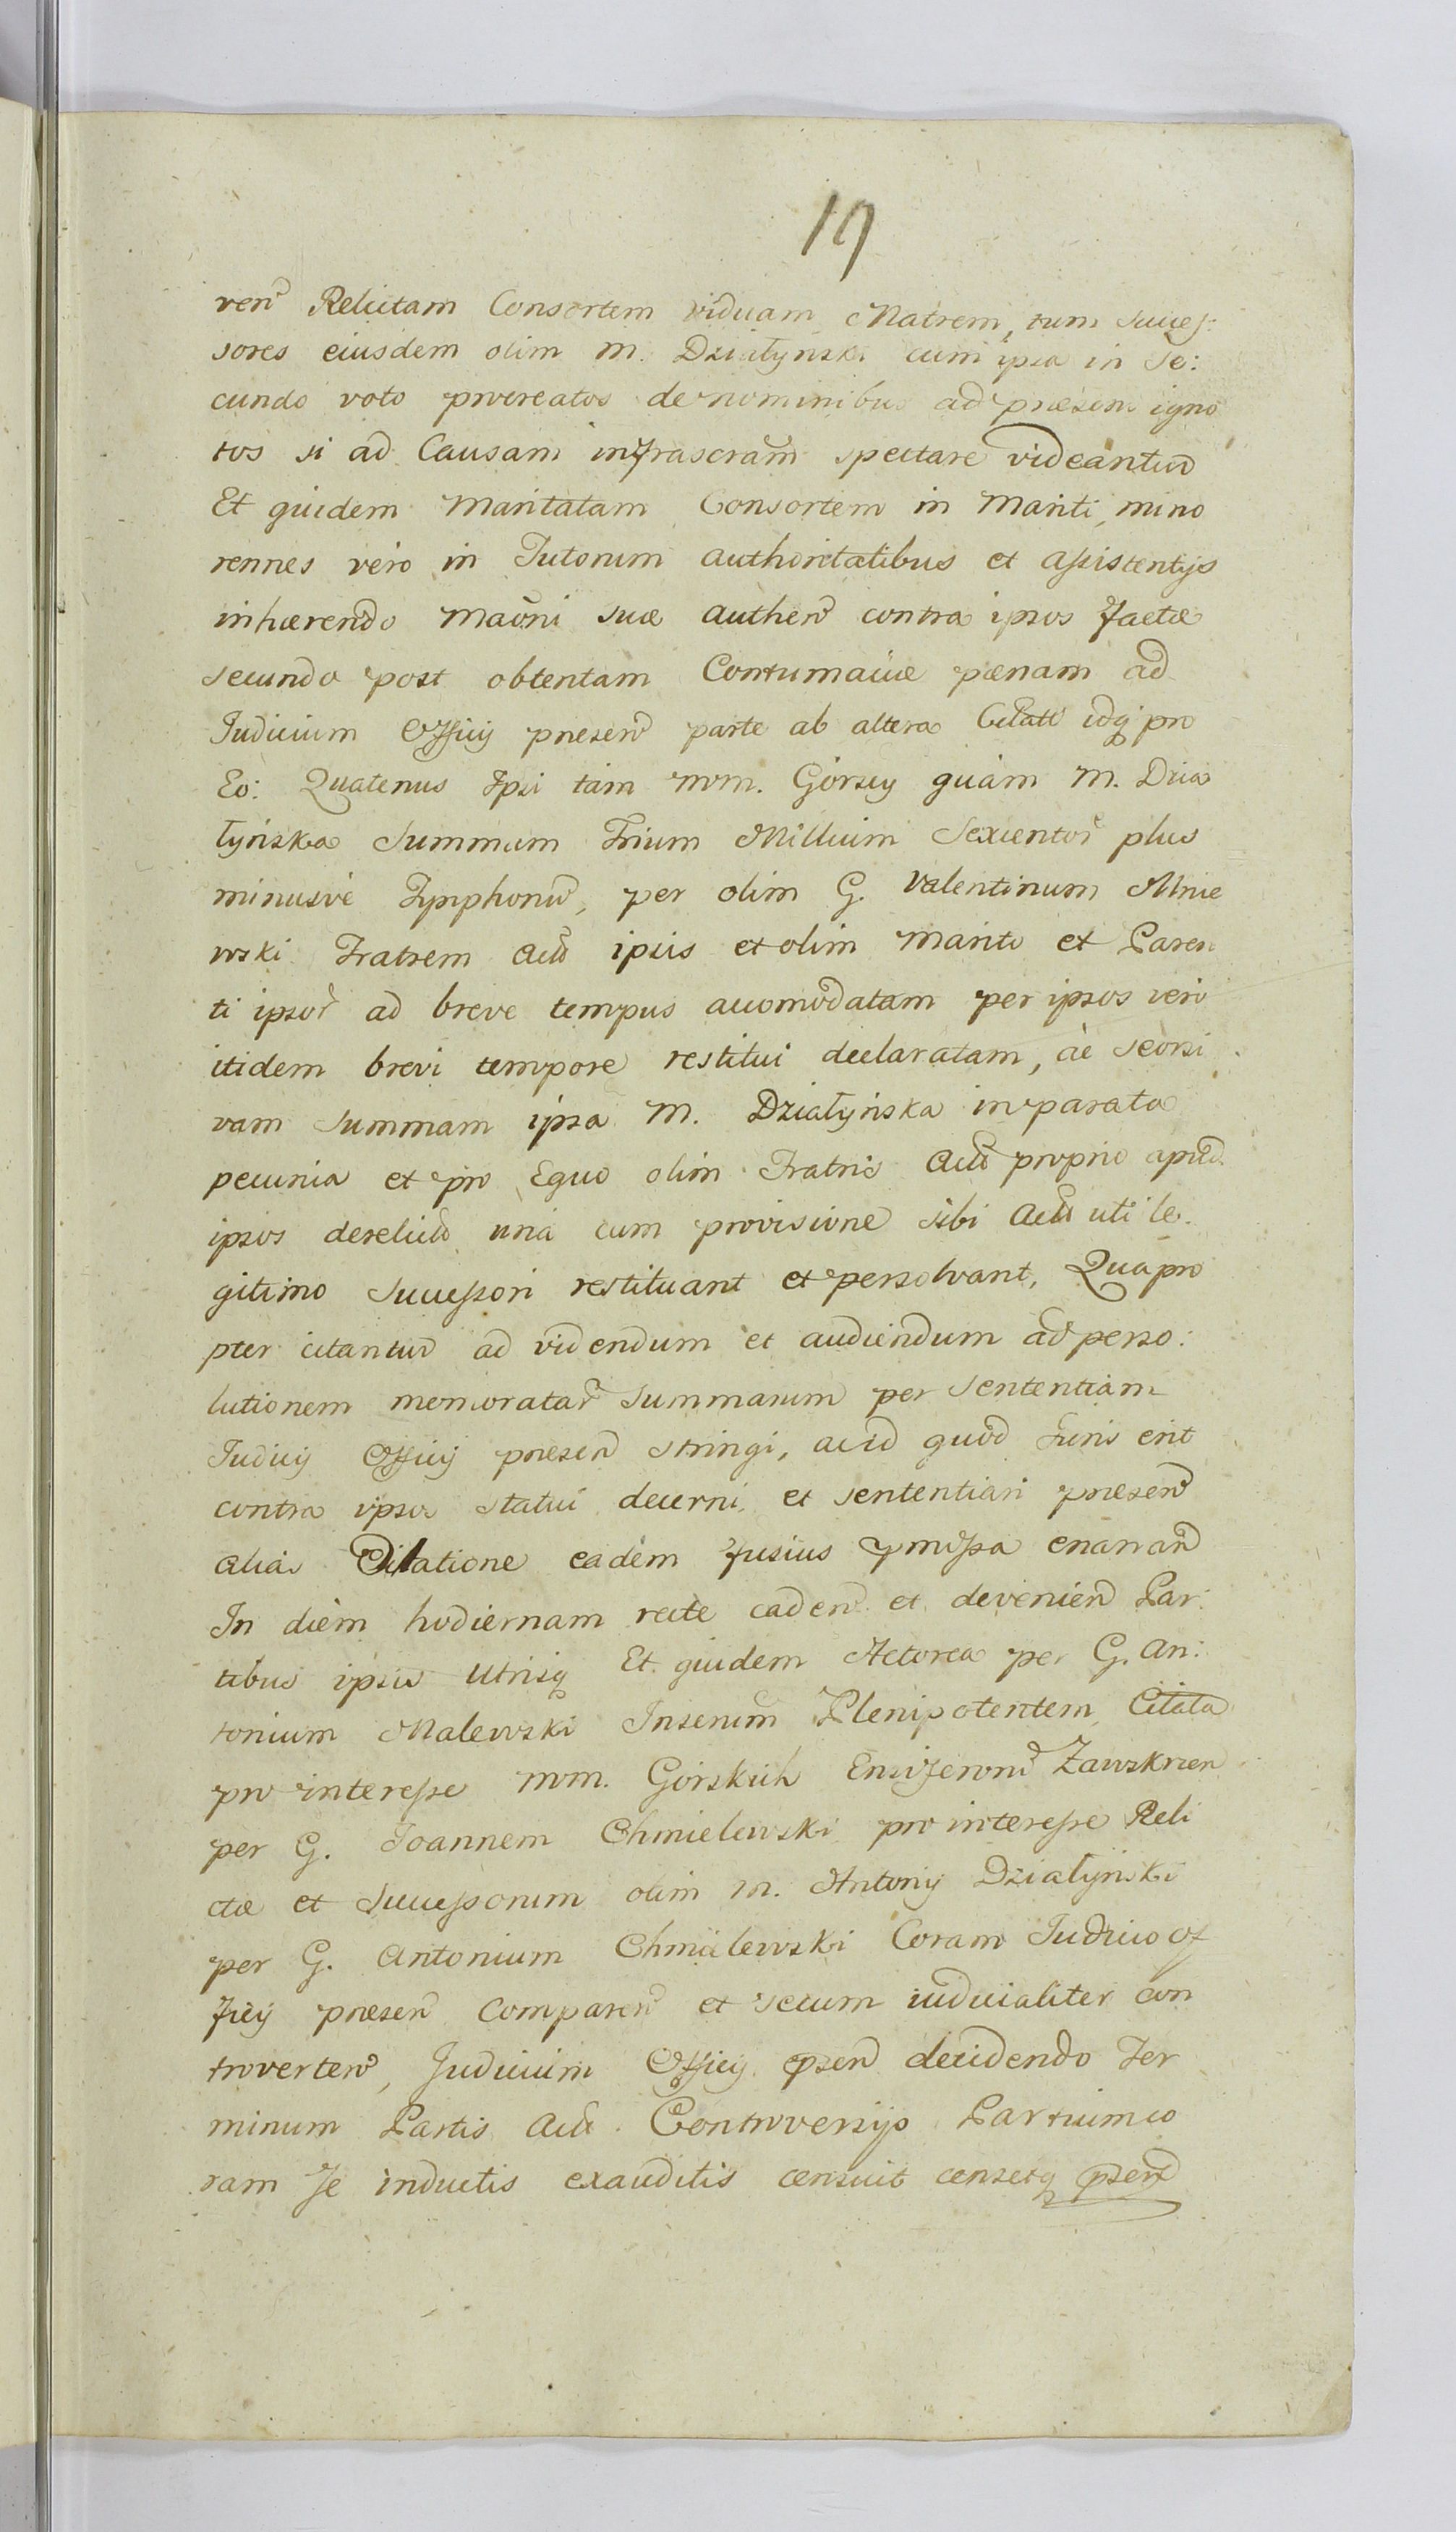 19
ven Relictam Consortem viduam Matrem, tum succes:
sores eiusdem olim M. Działynski cum ipsa in Se:
cundo voto procreatos de nominibus ad præsens igno
tos si ad Causam infrascram spectare videantur
Et quidem Maritatam Consortem in Mariti, mino
rennes vero in Tutorum authoritatibus et assistentijs
inhærendo Maōni suæ authen contra ipsos factæ
secundo post obtentam Contumaciæ pænam ad
Iudicium Officij præsen parte ab altera Citati idq pro
Eo: Quatenus Ipsi tam mm. Górscy quàm M. Dzia
łyńska Summam Trium Millium Sexcentor plus
minusve Tymphonu, per olim G. Valentinum Mnie
wski Fratrem Act ipsis et olim Marito et Paren
ti ipsor ad breve tempus accomodatam per ipsos vero
itidem brevi tempore restitui declaratam, ac seorsi
vam Summam ipsa M. Działyńska in parata
pecunia et pro Equo olim Fratris Act proprio apud
ipsos derelicto unà cum provisione sibi Act uti le.
gitimo Successori restituant et persolvant, Quapro
pter citantur ad videndum et audiendum ad perso:
lutionem memoratar Summarum per Sententiam
Iudicij Officij præsen stringi, acid quod Iuris erit
contra ipsos statui decerni et sententiari præsen
alias Citatione eadem fusius pmissa enarran
In diem hodiernam recte caden et devenien Par:
tibus ipsis utrisq Et quidem Actorea per G. An:
tonium Malewski Plenipotentem, Citata
pro interesse mm. Górskich Ensiferom Zawskrzen
per G. Joannem Chmielewski pro interesse Reli
ctæ et Successorum olim M. Antonij Działyński
per G. Antonium Chmielewski Coram Iudicio of
ficij præsen Comparen et secum iudicialiter con
troverten, Judicium Officij psen decidendo Ter
minum Partis Act Controversijs Partium co
ram se inductis exauditis censuit censetq psen